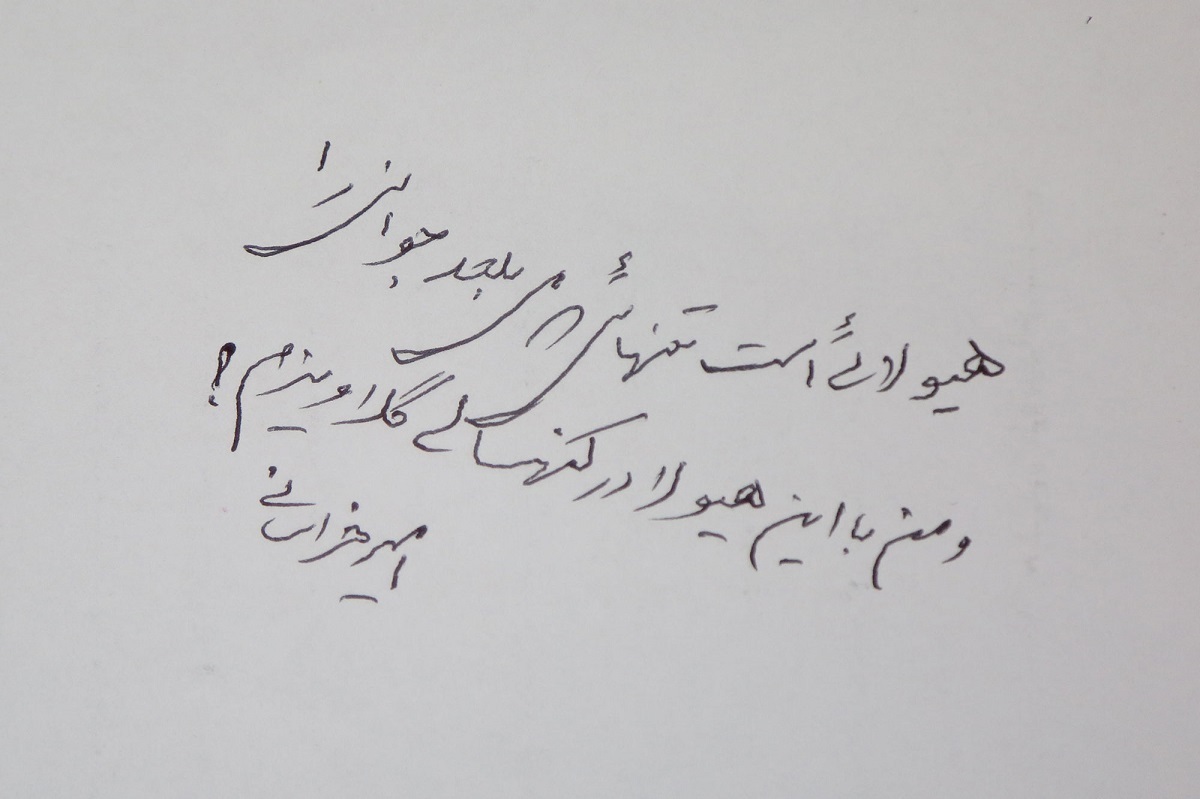 هیولائی است تنهائی که می بلعد جوانی را
و من با این هیولا در کهنسالی گلاویزم !
امیر خراسانی